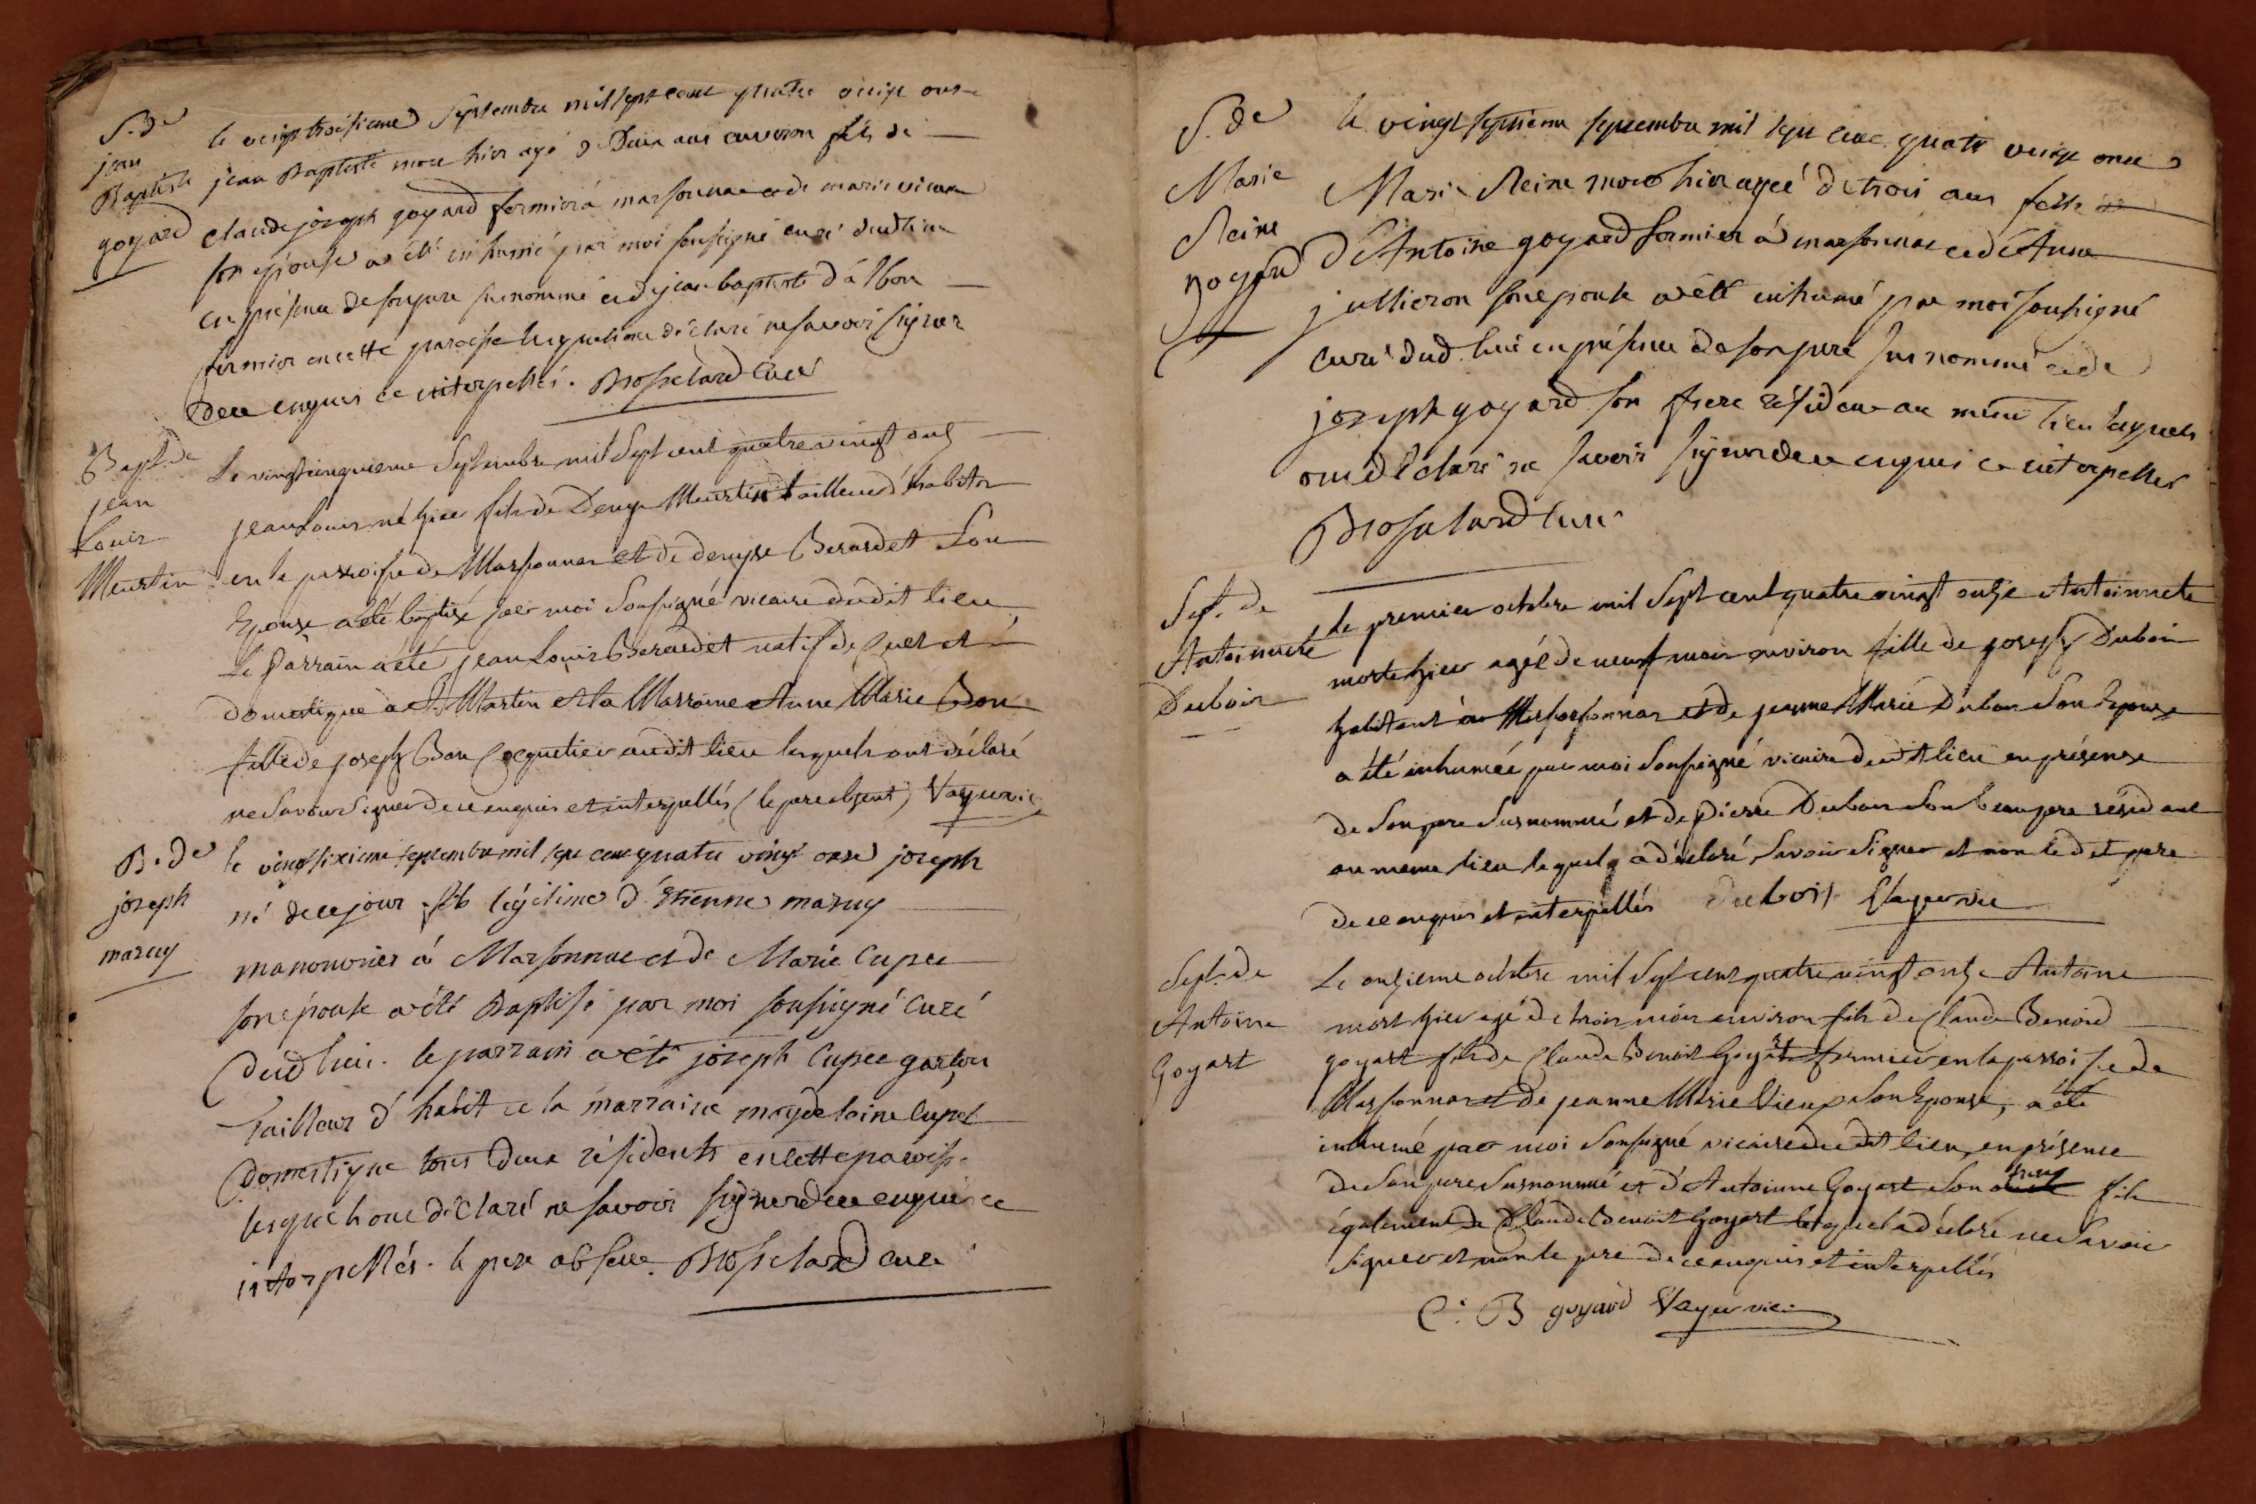 S. de
jean
Baptiste
goyard
le vingt troisieme septembre mil sept cent quatre vingt onze
jean Baptiste mort hier agé de deux ans environ fils de
claude joseph goyard fermier á marsonnac et de marie
son epouse a été inhumé par moi soussigné curé dud lieu
en présence de son pere susnommé et de jean baptiste d'albon
fermier en cette paroisse lesquels ont déclaré ne savoir signer
de ce enquis et interpellés. Brosselard Curé
Bapt. de
jean
Louis
Meurtin
Le vingt cinquieme Septembre mil Sept cent quatre vingt onze
jean Louis né hier fils de Denys Meurtin tailleur d'habits
en la parroisse de Marsonnas et de denyse Berardet Son
Epouse a été baptisé par moi Soussigné vicaire dudit lieu,
Le Parrain a été jean Louis Berardet natif de et
domestique a St. Martin et la Marraine Anne Marie Bon
fille de joseph Bon Coquetier audit lieu lesquels ont déclaré
ne Savoir Signer de ce enquis et interpellés (le pere absent)
B. de
joseph
maruy
le vingt sixieme septembre mil sept cent quatre vingt onze joseph
né de ce jour fils légitime d'Etienne maruy
manouvrier á Marsonnac et de Marie Cupee
son épouse a été Baptisé par moi soussigné Curé
dud lieu. le parrain a été joseph Cupee garçon
Tailleur d'habit et la marraine magdelaine Cupet
domestique tous deux résidents en cette paroisse
lesquels ont déclaré ne savoir signer de ce enquis et
interpellés. le pere absent. Brosselard curé
S. de
Marie
Reine
Goyard
le vingt septieme septembre mil sept cent quatre vingt onze
Marie Reine morte hier agée de trois ans fille
d'Antoine goyard fermier á marsonnac et d'Anne
jullieron son epouse a été inhumé par moi soussigné
Curé dud. lieu en présence de son pere susnommé et de
joseph goyard son frere résident au même lieu lesquels
ont déclaré ne savoir signer de ce enquis et interpellés
Brosselard Curé
Sep. de
Antoinette
Dubois
Le premier octobre mil Sept cent quatre vingt onze Antoinette
morte hier agée de neuf mois environ fille de joseph Dubois
habitant a Marsonnas et de jeanne Marie Dubois Son Epouse
a été inhumée par moi Soussigné vicaire dudit lieu en présence
de Son pere Susnommé et de Pierre Dubois Son beau pere résidant
au meme lieu lequel a déclaré Savoir Signer et non ledit pere
de ce enquis et interpellés Dubois
Sept. de
Antoine
Goyart
Le onzieme octobre mil Sept cent quatre vingt onze Antoine
mort hier agé de trois mois environ fils de Claude Benoid
goyart fils de Claude Benoit Goyart fermier en la parroisse de
Marsonnas et de jeanne Marie Vieux Son Epouse, a été
inhumé par moi Soussigné vicaire dudit lieu en présence
de Son pere Susnommé et d'Antoinne Goyart Son fils
également de Claude Benoit Goyart lequel a déclaré ne Savoir
Signer et non le pere de ce enquis et interpellés
C. B goyard